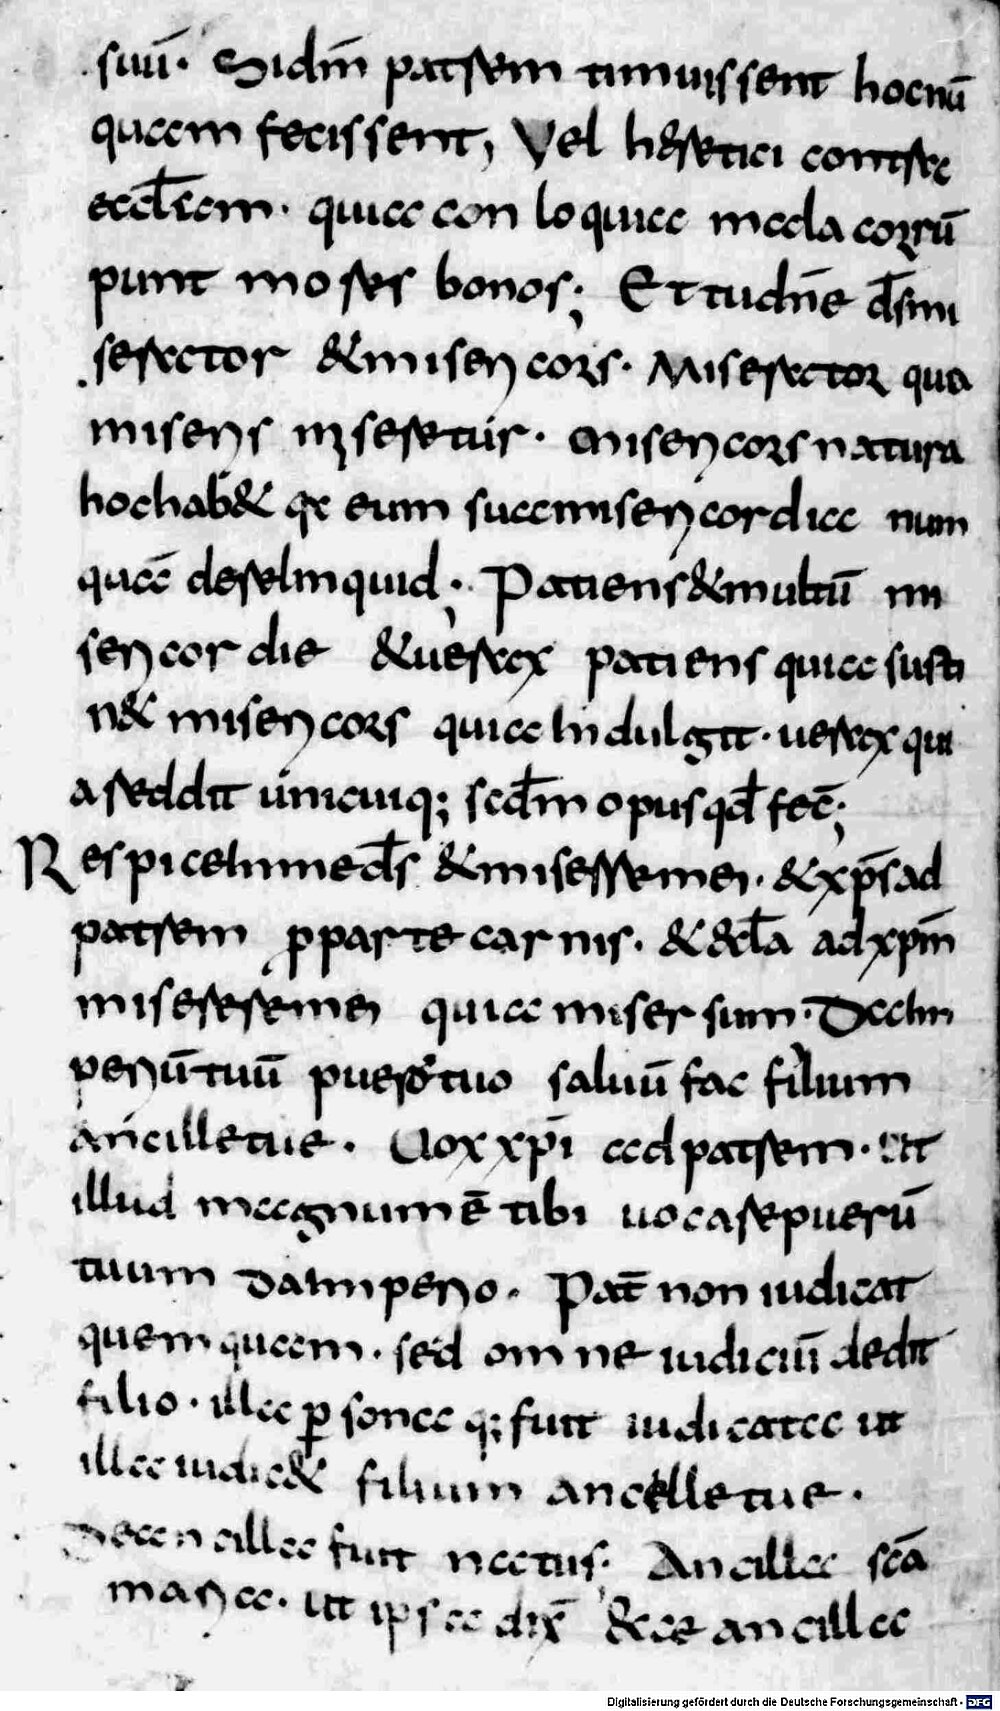 suū· Sidm̄ patrem timuissent hocnū
quam fecissent, Vel h&retici contra
eccl̄eam· quia con loquia mala corrū
punt mo res bonos; Et tu dn̄e ds̄ mi
serator &misericors· Miserator qua
miseris miseretur· misericors natura
hochab& qr eum suamisericordia num
quā derelinquid; Patiens&multū mi
sericor die &uerax patiens quia susti
n& misericors quia Indulgit· uerax qui
a reddit unicuiq; scdm̄ opus qd̄ fec̄;
Respice Inmeds̄ &miserere mei· &xps̄ ad
patrem pparte carnis· &eccl̄a ad xpm̄
miserere mei quia miser sum· Da Im
periū tuū puero tuo saluū fac filium
ancille tue· Uox xpi̅ ad patrem· ut
illud magnum ē tibi uocare puerū
tuum da Imperio· Pat̄ non iudicat
quem quam· sed omne iudiciū dedit
filio· illa p sona q; fuit iudicata ut
illa iudic& filium ancille tue·
De ancilla fuit natus· Ancilla sc̄a
maria· ut ipsa dix̄ &ce ancilla